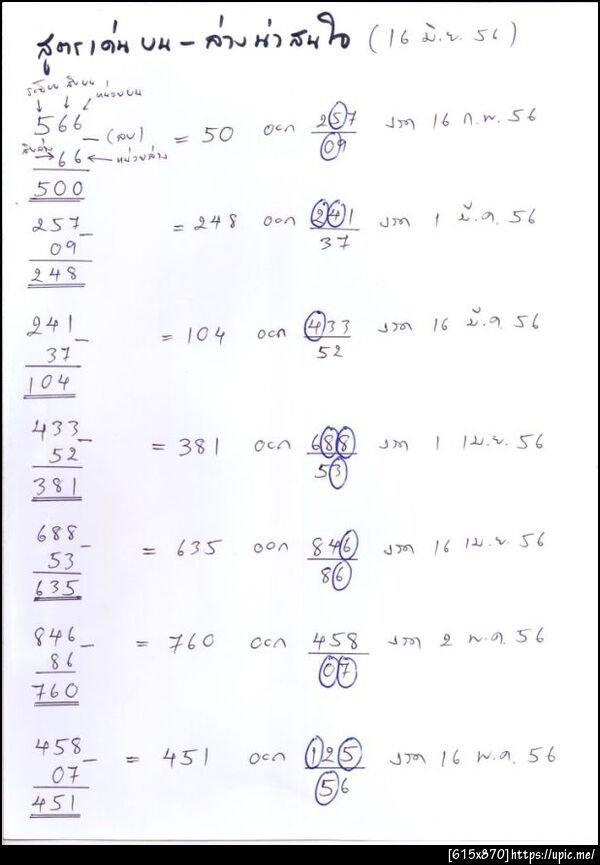 สูตรเด่นบน - ล่างน่าสนใจ (16 มิ.ย. 56)
ร้อยบน สิบบน หน่วยบน
566 - (ลบ) = 50 ออก 257 งวด 16 ก.พ. 56
สิบล่าง 66 หน่วยล่าง 09
500
257 - = 248 ออก 241 งวด 1 มี.ค. 56
09 37
248
241 - = 104 ออก 433 งวด 16 มี.ค. 56
37 52
104
433 - = 381 ออก 688 งวด 1 เม.ย. 56
52 53
381
688 - = 635 ออก 846 งวด 16 เม.ย. 56
53 86
635
846 - = 760 ออก 458 งวด 2 พ.ค. 56
86 07
760
458 - = 451 ออก 125 งวด 16 พ.ค. 56
07 56
451
[615x870]https://upic.me/